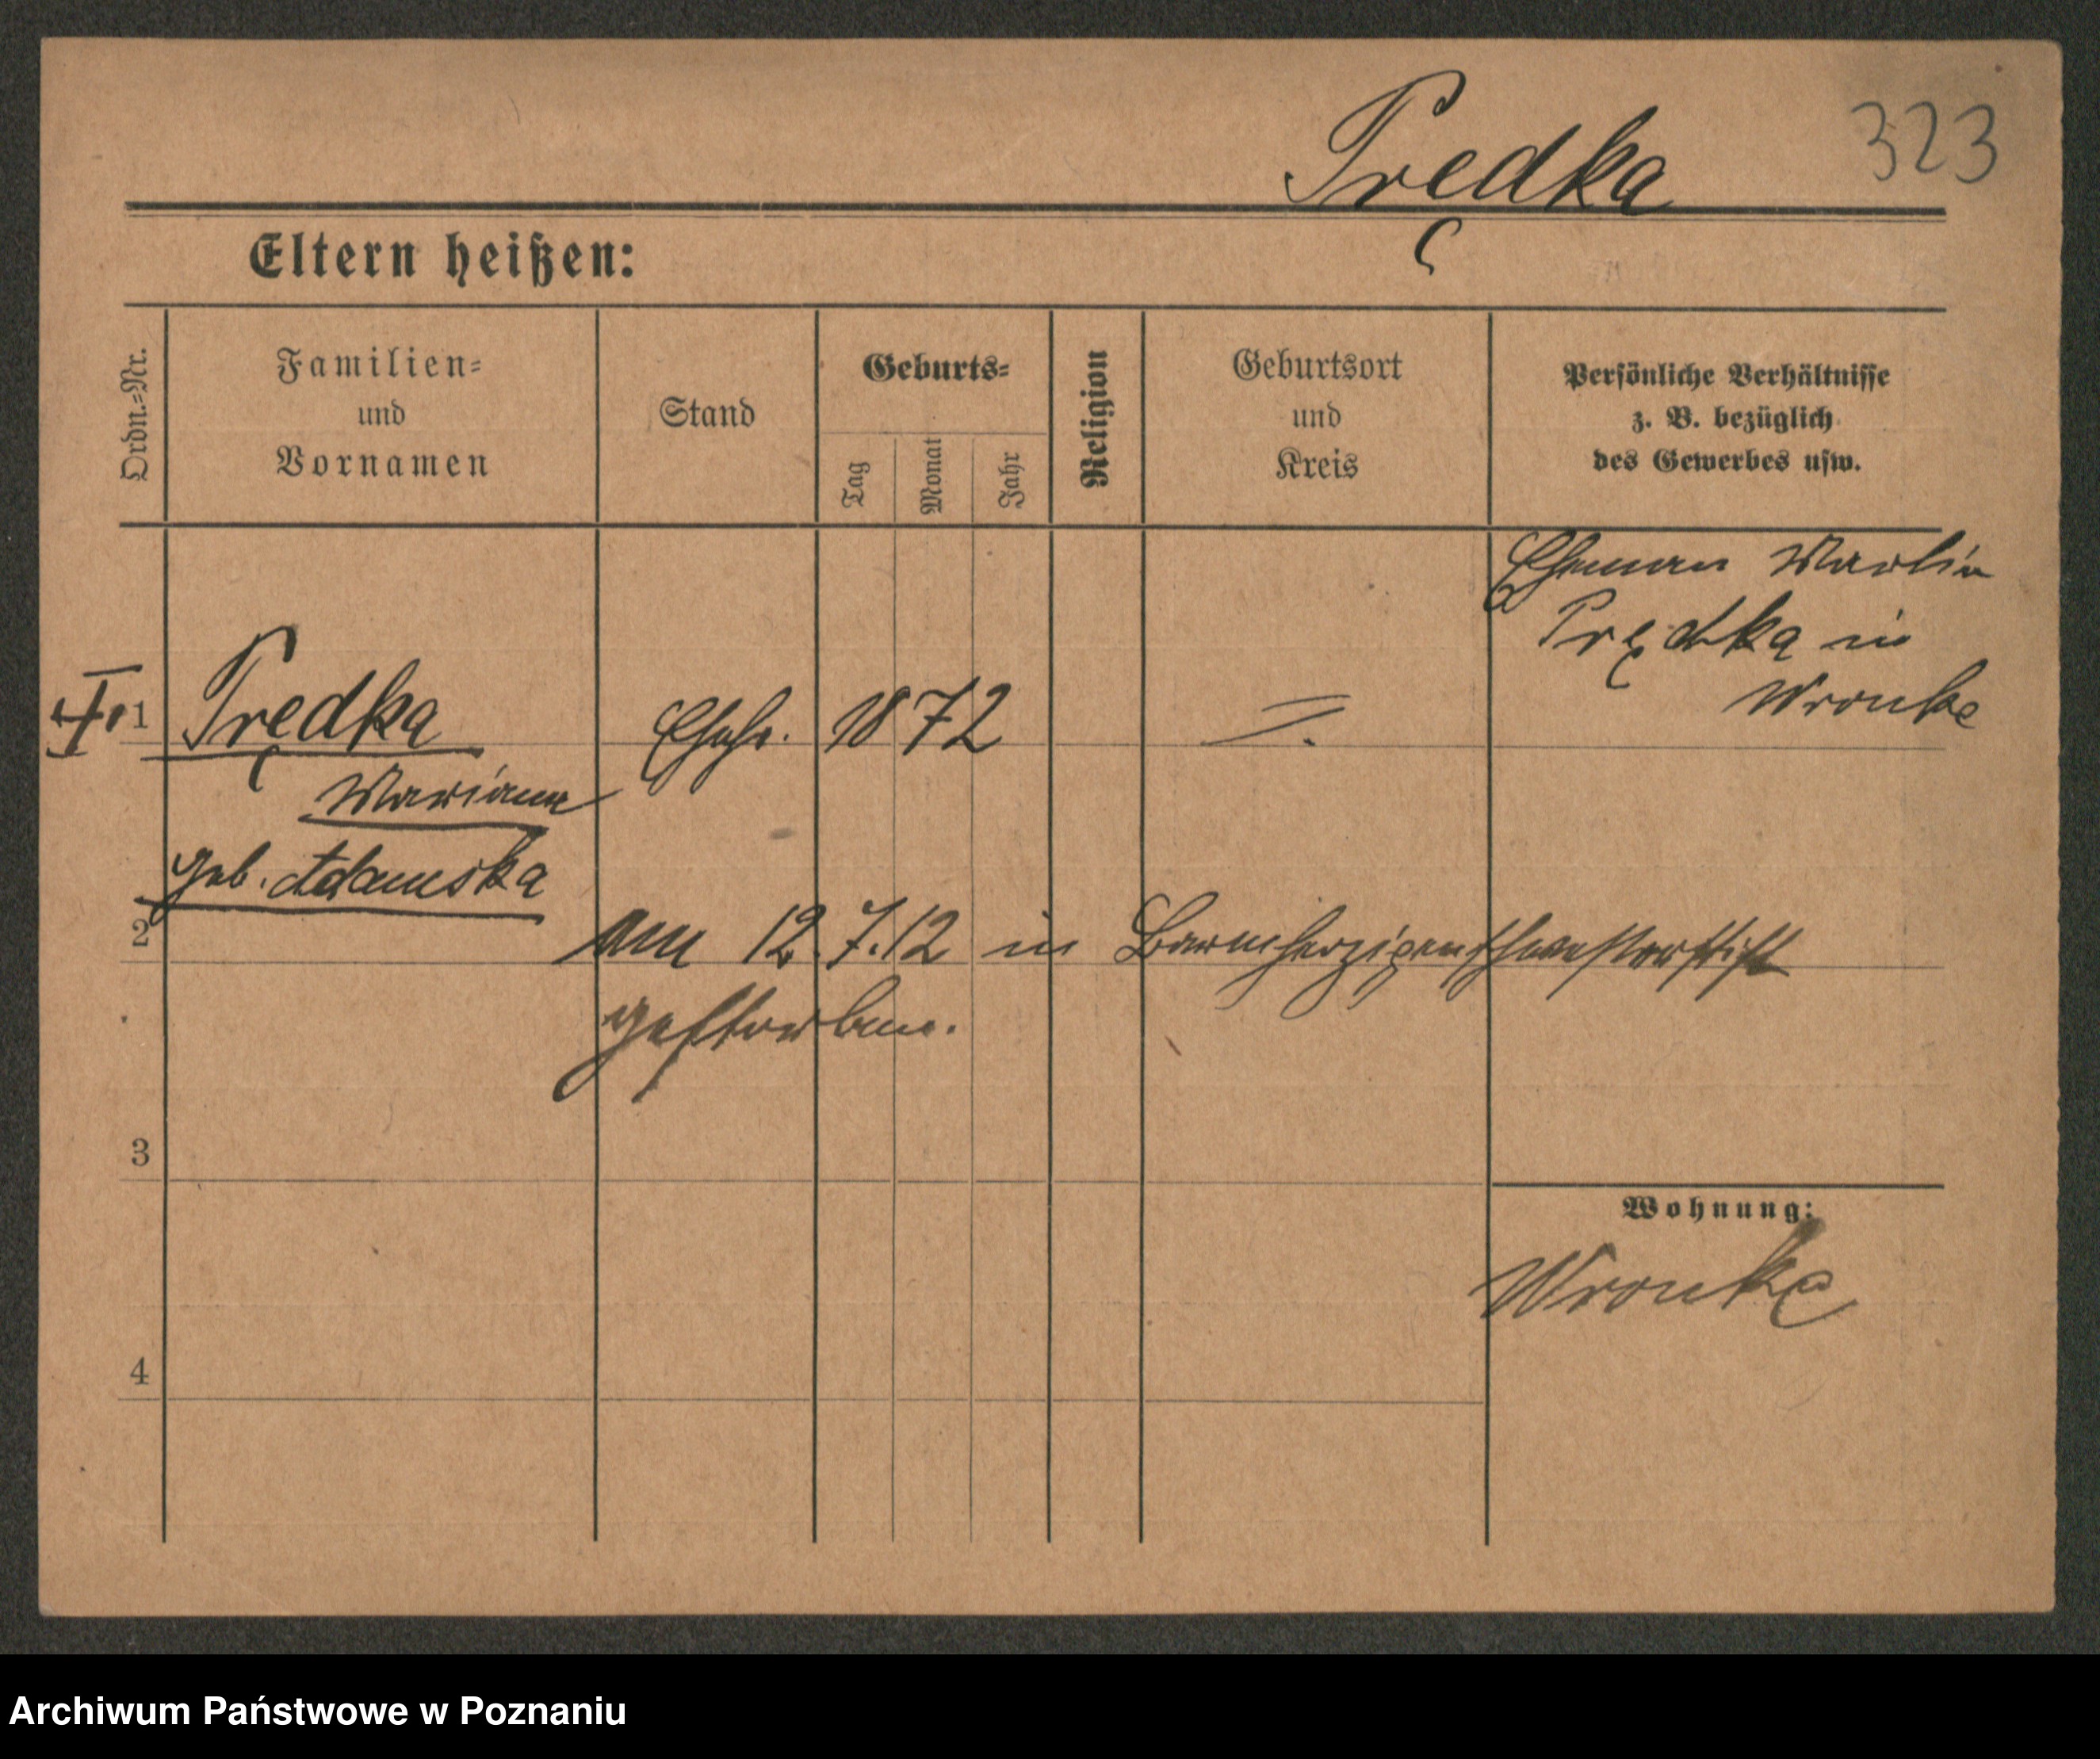 Prędka
323
Eltern heißen:
Ordn.-Nr.
Familien-
und
Vornamen
Stand
Geburts-
Tag
Monat
Jahr
Religion
Geburtsort
und
Kreis
Persönliche Verhältnisse
z. B. bezüglich
des Gewerbes usw.
Eheman
Prędka in
Wronke
1
Prędka
Ehefr.
1872
Marianna
geb. Adamska
2
am 12.7.12 in Barmherzigenschwesterstift
gestorben.
3
Wohnung:
Wronke
4
Archiwum Państwowe w Poznaniu